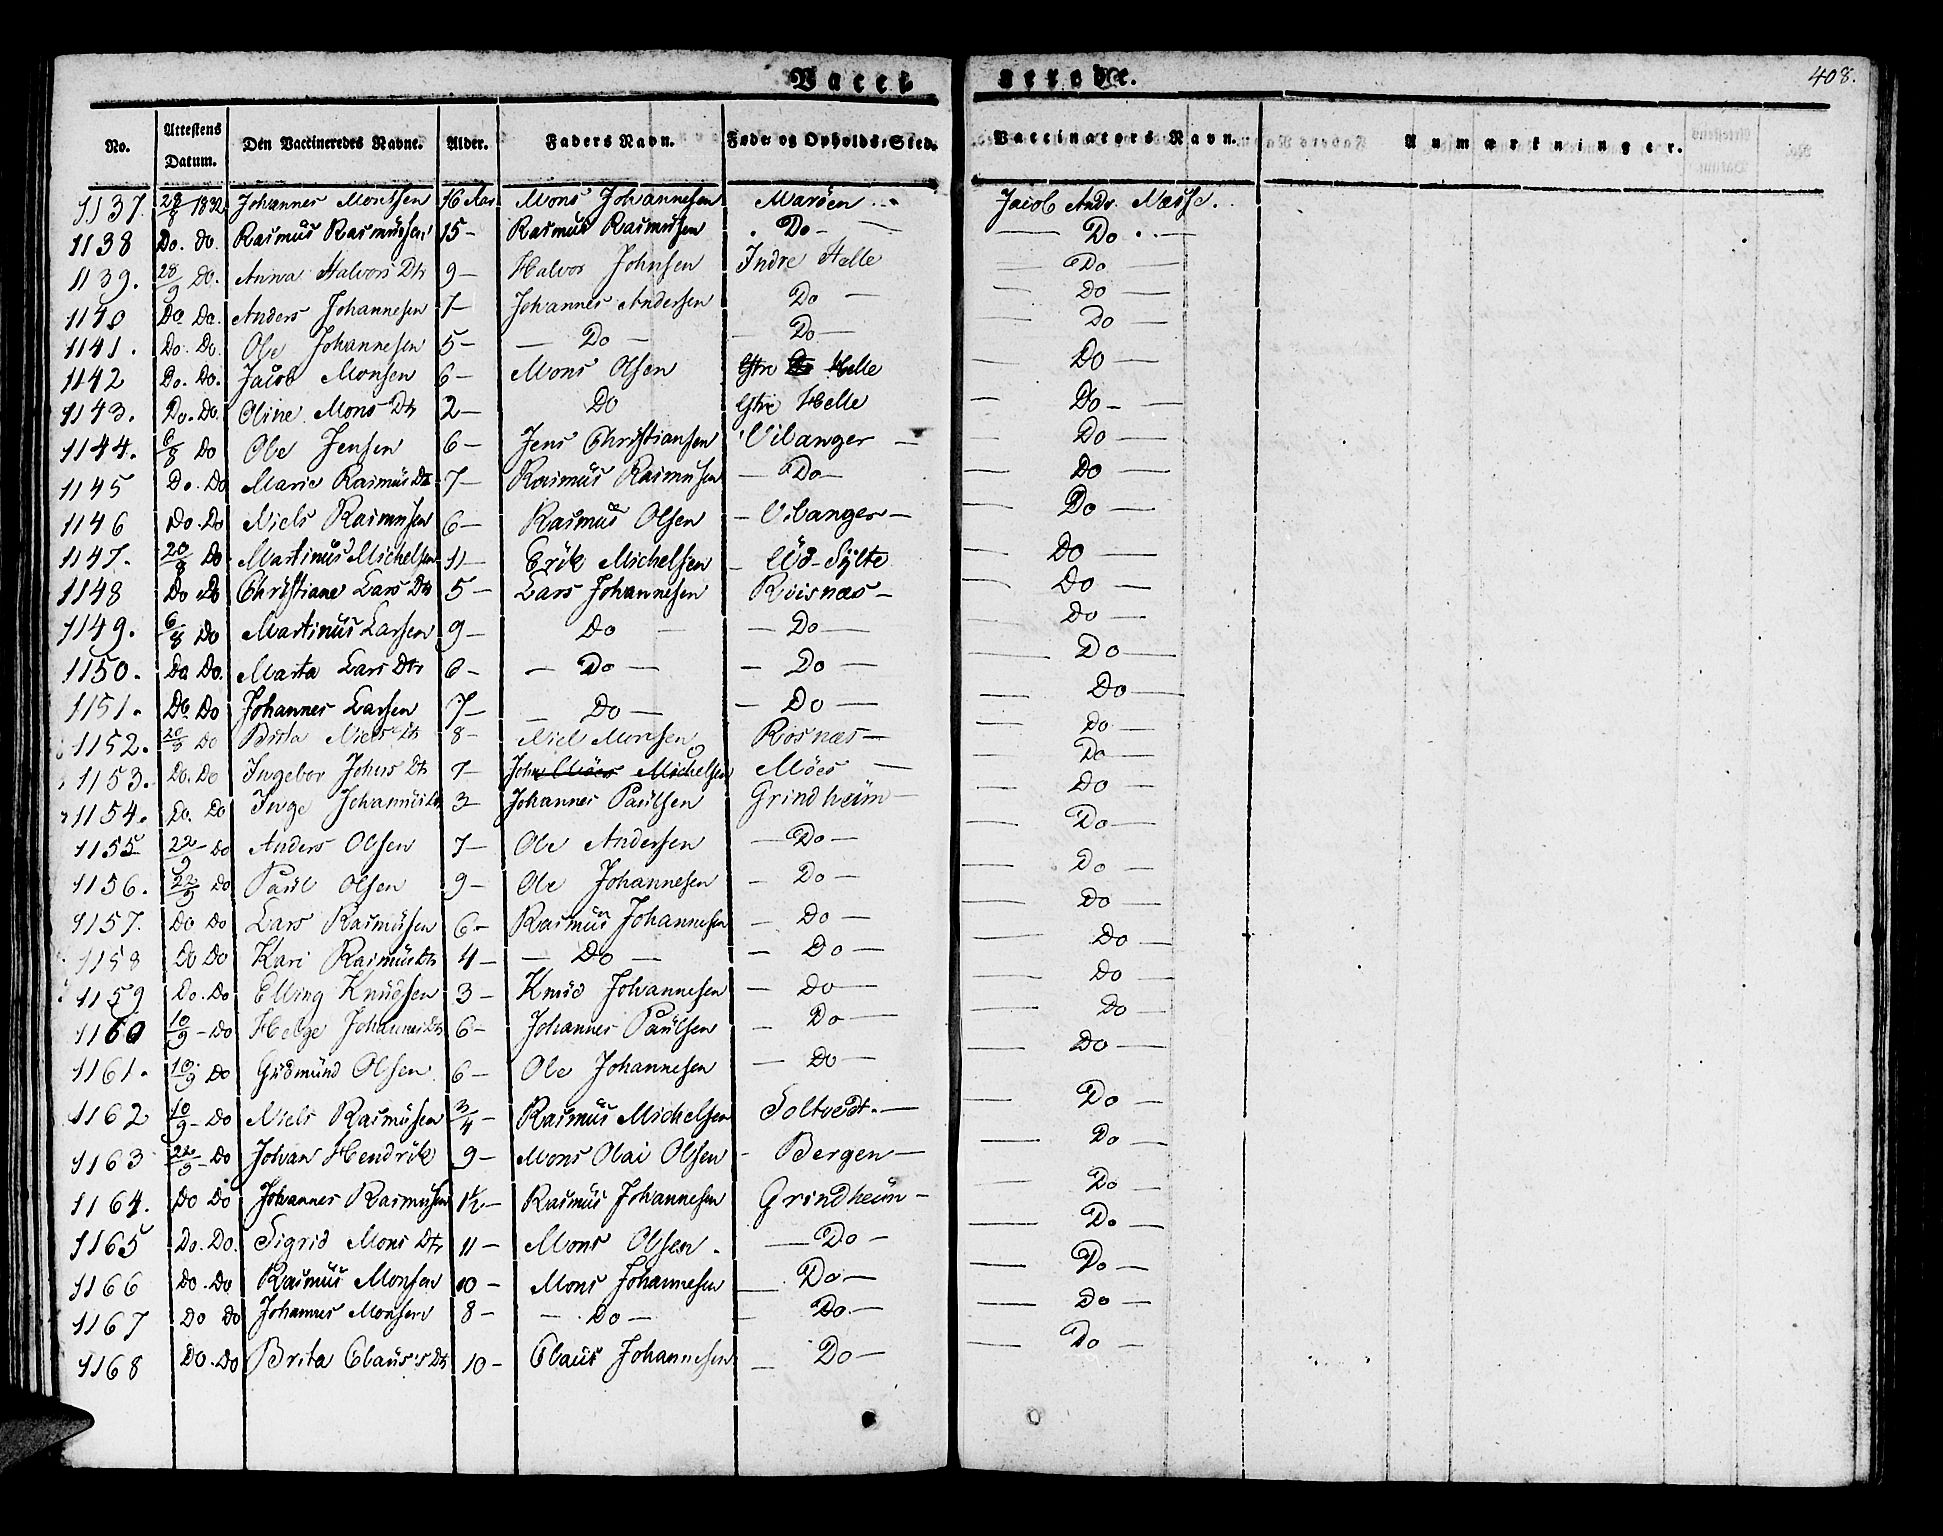 Vacci nerede. 408.
No. Attestens Datum. Den Vaccineredes Navne. Alder. Faders Navn. Føde og Opholds-Sted. Vaccinators Navn. Anmærkninger.
1137. 28/8 1832 Johannes Montsen 16 Aar Mons Johannesen Maröen Jacob Andr. Næsse.
1138 Do. do. Rasmus Rasmussen 15 - Rasmus Rasmussen Do - — Do —
1139. 28/9 Do. Anna Halvors Dtr 9 - Halvor Johnsen Indre Helle — Do —
1140 Do Do. Anders Johannesen 7 - Johannes Andersen Do — — Do —
1141. Do. Do. Ole Johannesen 5 - — Do — — Do — — Do —
1142 Do. Do. Jacob Monsen 6 - Mons Olsen Ytre Do Helle — Do —
1143. Do. Do. Oline Mons Dtr 2 - Do Ytre Helle — Do —
1144. 6/8 Do Ole Jensen 6 - Jens Christiansen Vilanger — — Do —
1145 Do. Do Marie Rasmus Dtr 7 - Rasmus Rasmusen — Do — — Do —
1146 Do. Do Niels Rasmusen 6 - Rasmus Olsen — Vilanger — — Do —
1147. 20/8 Do Martinus Michelsen 11 - Erik Michelsen — Üd-Sylte — Do —
1148 Do Do Christiane Lars Dtr 5 - Lars Johannesen Röisnæs — — Do —
1149. 6/8 Do Martinus Larsen 9 - Do — — Do — — Do —
1150. Do Do. Marta Lars Dtr 6 - — Do — — Do — — Do —
1151. Do Do Johannes Larsen 7 - — Do — — Do — — Do —
1152. 20/9 Do Brita Niels Dtr 8 - Niel Monsen Rösnæs — — Do —
1153. Do. Do Ingebor Johns Dtr 7 - John Möes Michelsen Möes — — Do —
1154. Do. Do Inge Johannes Dtr 3 - Johannes Paulsen Grindheim — — Do —
1155 22/9 - Do Anders Olsen 7 - Ole Andersen — Do — — Do —
1156. 22/9 Do Paul Olsen 9 - Ole Johannesen — Do — — Do —
1157. Do Do Lars Rasmusen 6 - Rasmus Johannesen — Do — — Do —
1158 Do Do Kari Rasmus Dtr 4 - — Do — — Do — — Do —
1159 Do. Do Elling Knudsen 3 - Knud Johannesen — Do — — Do —
1160 10/9 - Do Helge Johannes Dtr 6 - Johannes Paulsen — Do — — Do —
1161. 10/9 Do Gudmund Olsen 6 - Ole Johannesen — Do — — Do —
1162 10/9 - Do Niels Rasmusen 3/4 - Rasmus Michelsen Soltvedt. — — Do —
1163 22/9 - Do Johan Hendrik 9 - Mons Olai Olsen - Bergen — — Do —
1164. Do Do Johannes Rasmusen 1½ - Rasmus Johannesen Grindheim - — Do —
1165 Do. Do. Sigrid Mons Dtr 11 - Mons Olsen. — Do - — Do —
1166 Do. Do Rasmus Monsen 10 - Mons Johannesen — Do — — Do —
1167 Do Do Johannes Monsen 8 - — Do — — Do. — — Do —
1168 Do. Do Brita Claus's Dtr 10 - Claus Johannesen — Do — — Do —